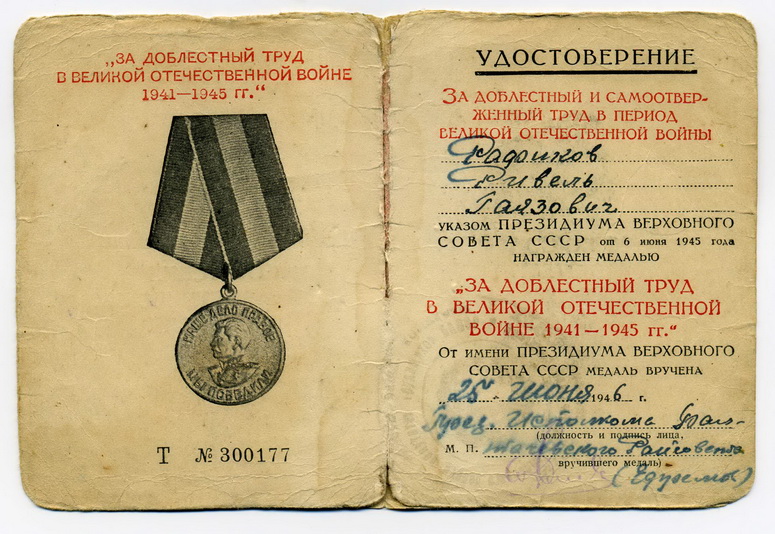 „ЗА ДОБЛЕСТНЫЙ ТРУД
В ВЕЛИКОЙ ОТЕЧЕСТВЕННОЙ ВОЙНЕ
1941—1945 ГГ.“
НАШЕ ДЕЛО ПРАВОЕ
МЫ ПОБЕДИЛИ
Т № 300177
УДОСТОВЕРЕНИЕ
ЗА ДОБЛЕСТНЫЙ И САМООТВЕР-
ЖЕННЫЙ ТРУД В ПЕРИОД
ВЕЛИКОЙ ОТЕЧЕСТВЕННОЙ ВОЙНЫ
Радиков
Ривель
Гаязович
УКАЗОМ ПРЕЗИДИУМА ВЕРХОВНОГО
СОВЕТА СССР от 6 июня 1945 года
НАГРАЖДЕН МЕДАЛЬЮ
„ЗА ДОБЛЕСТНЫЙ ТРУД
В ВЕЛИКОЙ ОТЕЧЕСТВЕННОЙ
ВОЙНЕ 1941—1945 гг.“
От имени ПРЕЗИДИУМА ВЕРХОВНОГО
СОВЕТА СССР МЕДАЛЬ ВРУЧЕНА
„25 - июня 1946 г.
Пред. Исполкома
(должность и подпись лица,
М. П. Райсовета
вручившего медаль)